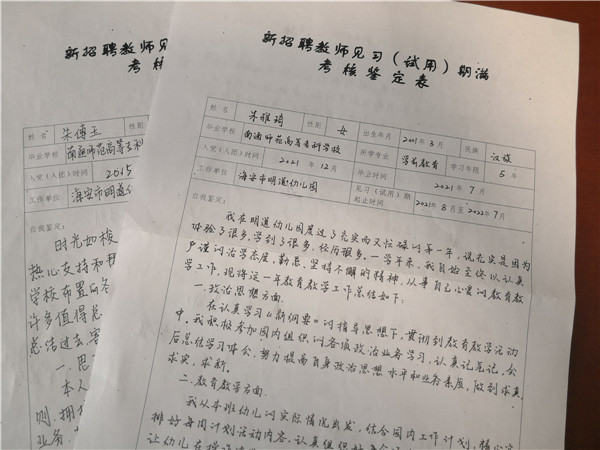 新招聘教师见习(试用)期满
考核鉴定表
姓名 朱雅琦 性别 女 出生年月 2001年3月 民族 汉族
毕业学校 南通师范高等专科学校 所学专业 学前教育 学习年限 5年
入党(入团)时间 2021.12月 毕业时间 2021年7月
工作单位 海安市明道幼儿园 见习(试用)期起止时间 2021年8月至2022年7月
自我鉴定:
我在明道幼儿园度过了充实而又忙碌的第一年,说充实是因为
体验了很多,学到了很多,经历很多。一学年来,我自始至终以认真
严谨的治学态度,勤恳、坚持不懈的精神,从事自己心爱的教育教
学工作,现将这一年教育教学工作总结如下:
一.政治思想方面.
在认真学习《新纲要》的指导思想下,贯彻到教育教学活动
中。我积极参加园内组织的各项政治业务学习,认真记笔记,会
后总结学习体会,努力提高自身政治思想水平和业务素质,做到求真、
求实、求新。
二.教育教学方面.
我从本班幼儿的实际情况出发,结合园内工作计划,精心安
排好每周计划活动内容,认真组织好
让幼儿在操作
新招聘教师见
考核
姓名 朱傅玉 性别
毕业学校 南通师范高等专科
入党(入团)时间 2015
工作单位 海安市明道
自我鉴定:
时光如梭
热心支持和
学校布置的各
许多值得总
总结过去,
一.思
本人
则,拥
业务